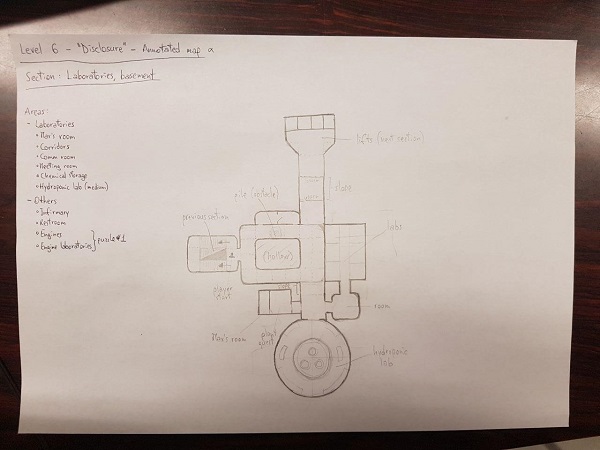 Level 6 - "Disclosure" - Annotated map a
Section: Laboratories, basement
Areas:
- Laboratories
Max's room
Corridors
Comm room
Meeting room
Chemical storage
Hydroponic lab (medium)
- Others
Infirmary
Restroom
Engines
Engine laboratories } puzzle #1
lifts (next section)
slope
pile (obstacle)
previous section
(hollow)
labs
player start
room
Max's room
plant quest
hydroponic lab